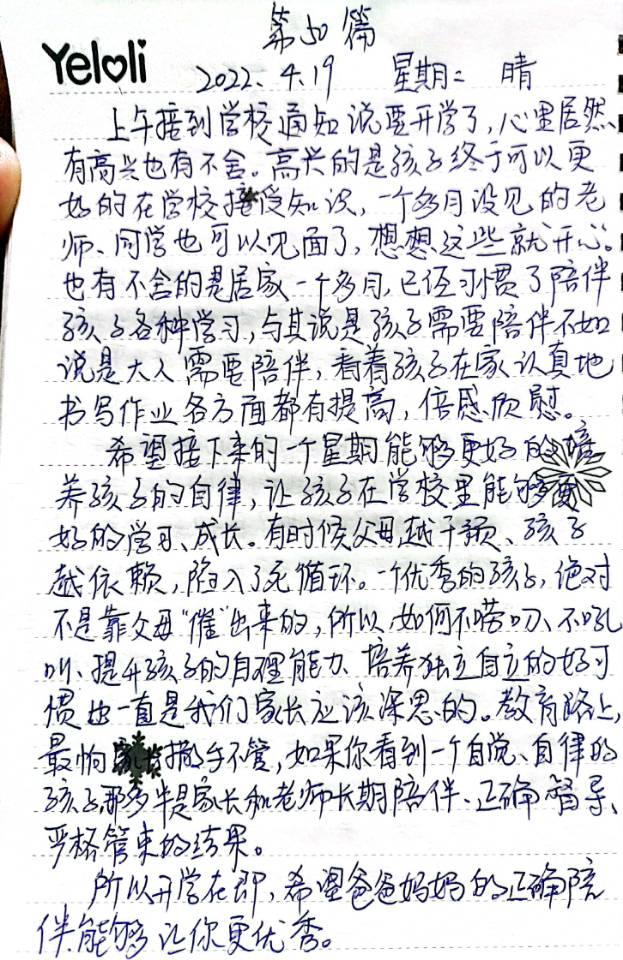 第50篇
Yeloli
2022.4.19 星期二 晴
上午接到学校通知说要开学了,心里居然
有高兴也有不舍。高兴的是孩子终于可以更
好的在学校接受知识,一个多月没见的老
师、同学也可以见面了,想想这些就开心。
也有不舍的是居家一个多月,已经习惯了陪伴
孩子各种学习,与其说是孩子需要陪伴不如
说是大人需要陪伴,看着孩子在家认真地
书写作业各方面都有提高,倍感欣慰。
希望接下来的一个星期能够更好的培
养孩子的自律,让孩子在学校里能够更
好的学习、成长。有时候父母越干预、孩子
越依赖,陷入了死循环。一个优秀的孩子,绝对
不是靠父母“催”出来的,所以,如何不唠叨、不吼
叫、提升孩子的自理能力、培养独立自立的好习
惯也一直是我们家长应该深思的。教育路上,
最怕家长撒手不管,如果你看到一个自觉、自律的
孩子,那多半是家长和老师长期陪伴、正确督导、
严格管束的结果。
所以开学在即,希望爸爸妈妈的正确陪
伴能够让你更优秀。